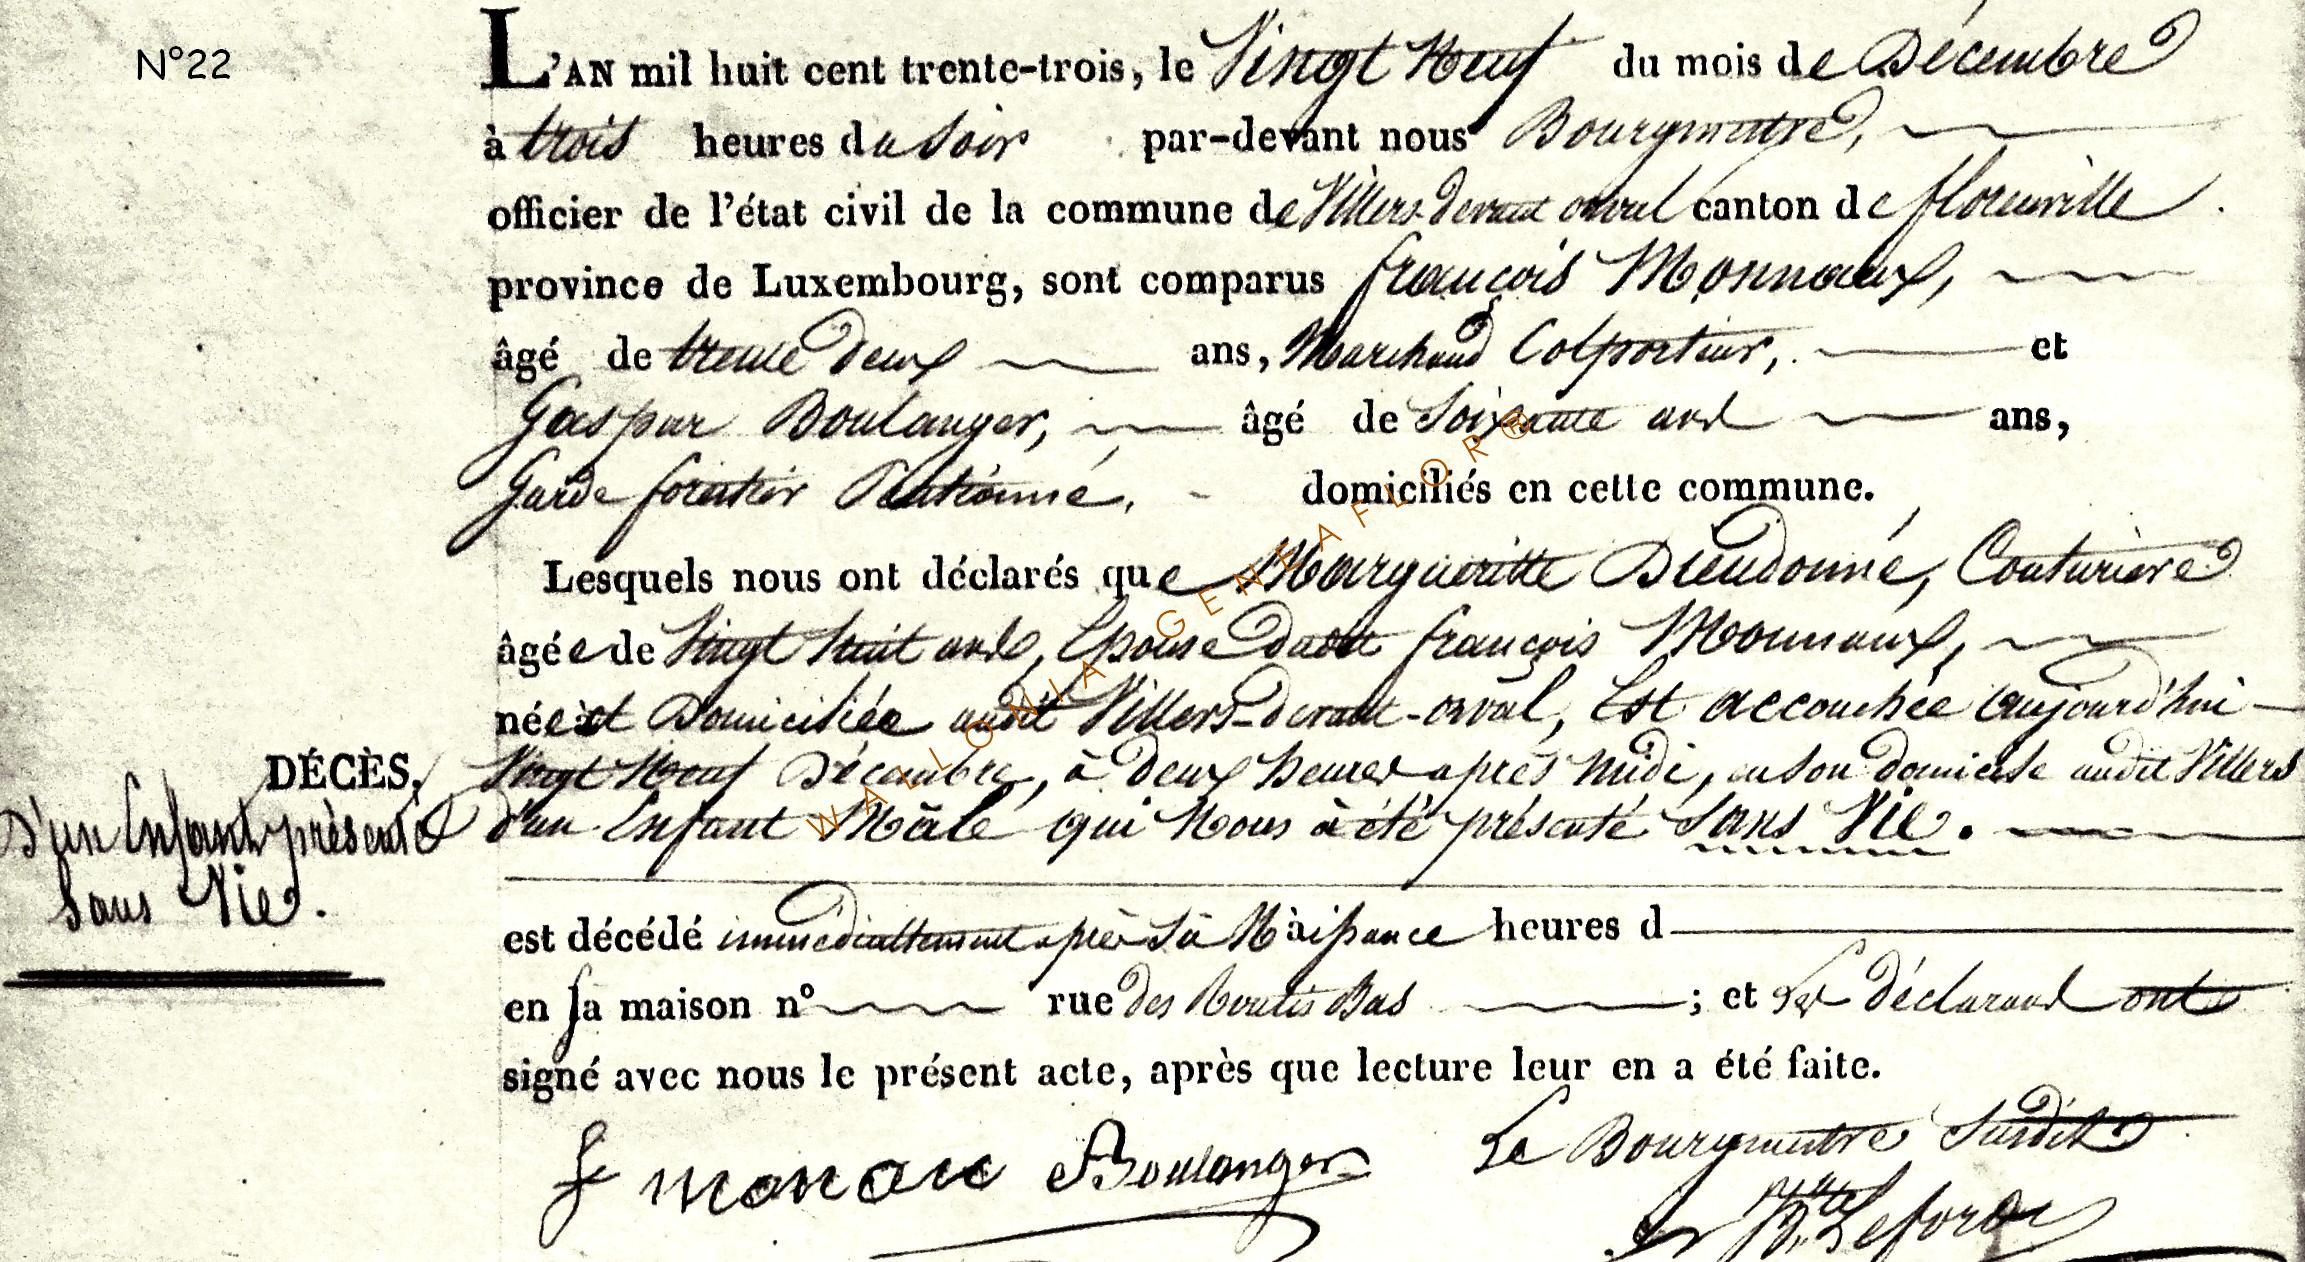 N°22
L'AN mil huit cent trente-trois, le Vingt Neuf du mois de Décembre
à trois heures du Soir par-devant nous Bourgmestre,
officier de l'état civil de la commune de Villers-devant orval canton de florenville
province de Luxembourg, sont comparus françois Monnaux,
âgé de trente deux ans, Marchand Colporteur, et
Gaspar Boulanger, âgé de Soixante ans,
Garde forestier Pentionné, domiciliés en cette commune.
Lesquels nous ont déclarés que Margueritte Dieudonné, Couturière
âgée de Vingt huit ans, Epouse dudit françois Monnaux,
née et Domiciliée audit Villers-devant-orval, Est accouchée aujourd'hui
Vingt Neuf Décembre, à deux heures après midi, en son domicile audit Villers
d'un Enfant Mâle qui Nous à été présenté Sans Vie.
DÉCÈS,
D'un Enfant présenté
Sans Vie.
est décédé immédiattement après Sa Naissance heures d
en sa maison n° rue des Bas ; et Les déclarans ont
signé avec nous le présent acte, après que lecture leur en a été faite.
Le Bourgmestre Susdit
f monau Boulanger
Lefort
WALLONIA GENEAFLOR®